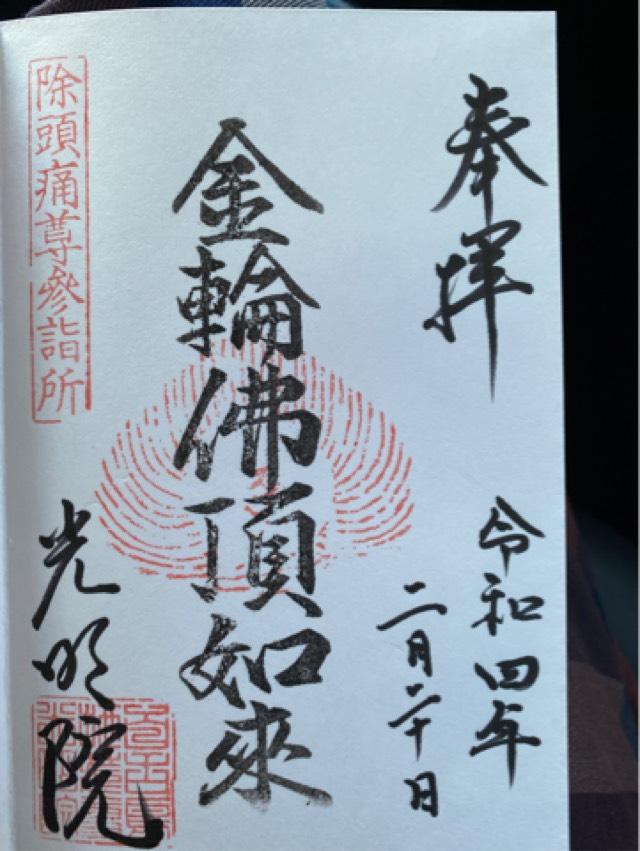 奉拝
令和四年
二月二十日
金輪佛頂如來
除頭痛尊參詣所
光明院